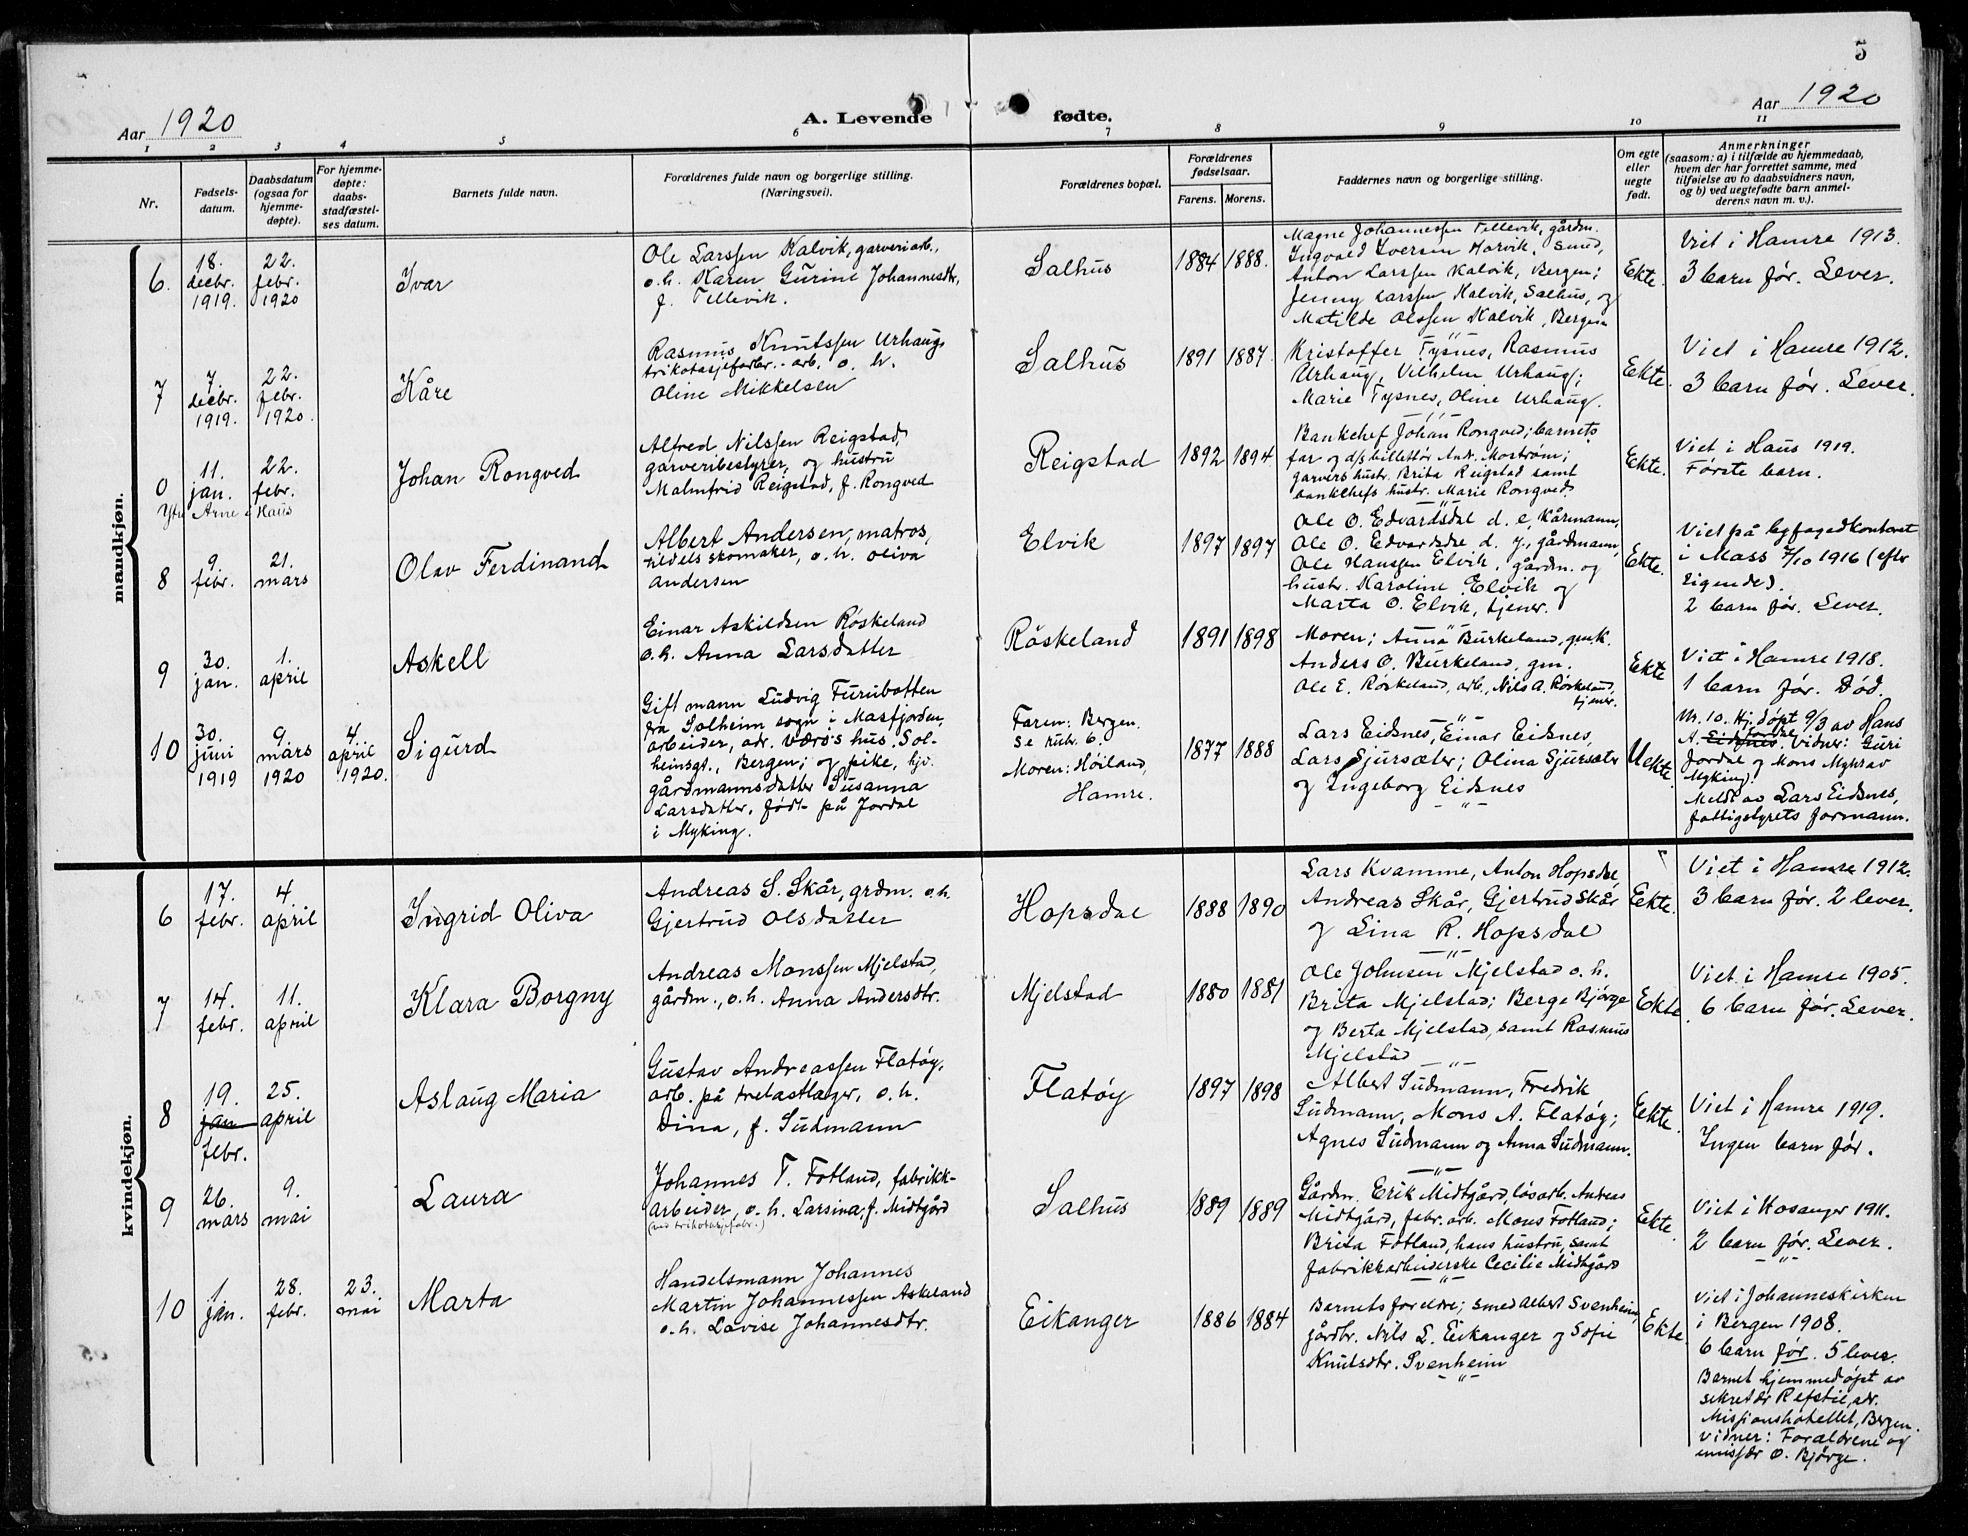 5
Aar 1920
A. Levende fødte.
Aar 1920
1 2 3 4 5 6 7 8 9 10 11
Nr.
Fødsels-
datum.
Daabsdatum
(ogsaa for
hjemme-
døpte).
For hjemme-
døpte:
daabs-
stadfæstel-
ses datum.
Barnets fulde navn.
Forældrenes fulde navn og borgerlige stilling.
(Næringsvei).
Forældrenes bopæl.
Forældrenes
fødselsaar.
Farens. Morens.
Faddernes navn og borgerlige stilling.
Om egte
eller
uegte
født.
Anmerkninger
(saasom: a) i tilfælde av hjemmedaab,
hvem der har forrettet samme, med
tilføielse av to daabsvidners navn,
og b) ved uegtefødte barn anmel-
derens navn m. v.).
mandkjøn.
6.
18.
decbr.
1919.
22.
febr.
1920
Ivar
Ole Larssen Kalvik, garveriarb.,
o.h. Karen Gurine Johannesdtr,
f. Tellevik.
Salhus
1884 1888.
Magne Johannessen Tellevik, gårdm.
Ingvald Iversen Horvik, smed,
Anton Larssen Kalvik, Bergen;
Jenny Larssen Kalvik, Salhus, og
Matilde Olssen Kalvik, Bergen
Ekte.
Viet i Hamre 1913.
3 barn før. Lever.
7
7.
decbr.
1919.
22.
febr.
1920.
Kåre
Rasmus Knutssen Urhaug
trikotasjefarbr.-arb. o. h.
Oline Mikkelsen
Salhus
1891 1887.
Kristoffer Tysnes, Rasmus
Urhaug, Vilhelm Urhaug;
Marie Tysnes, Oline Urhaug.
Ekte.
Viet i Hamre 1912.
3 barn før. Lever.
0
11.
jan.
22.
febr.
Ytre Arne i Haus
Johan Rongved
Alfred Nilssen Reigstad,
garveribestyrer, og hustru
Malmfrid Reigstad, f. Rongved
Reigstad
1892 1894.
Bankchef Johan Rongved; barnets
far og d/s billettør Andr. Mostrøm;
garvers hustr. Brita Reigstad samt
bankchefs hustr. Marie Rongved
Ekte.
Viet i Haus 1919.
Første barn.
8
9.
febr.
21.
mars
Olav Ferdinand
Albert Andersen, matros,
tildels skomaker, o. h. Oliva
Andersen
Elvik
1897 1897
Ole O. Edvardsdal d. e, kårmann,
Ole O. Edvardsdal d. y., gårdmann,
Ole Hanssen Elvik, gårdm. og
hustr. Karoline Elvik og
Marta O. Elvik, tjener.
Ekte.
Viet på byfogedkontoret
i Mass 7/10 1916 (efter
sigende).
2 barn før. Lever.
9
30.
jan.
1.
april
Askell
Einar Askildsen Røskeland
o.h. Anna Larsdatter
Røskeland
1891 1898
Moren; Anna Burkeland, gm.k.
Anders O. Burkeland, gm.
Ole E. Røskeland, arb., Nils A. Røskeland,
tjener.
Ekte
Viet i Hamre 1918.
1 barn før. Død.
10
30.
juni
1919
9.
mars
1920
4
april
1920.
Sigurd
Gift mann Ludvig Furubotten
fra Solheim sogn i Masfjorden,
arbeider, adr. Værøs hus. Sol-
heinsgt., Bergen; og pike, hjv.
gårdmannsdatter Susanna
Larsdatter, født på Jordal
i Myking.
Faren: Bergen.
Se rubr. 6.
Moren: Høiland,
Hamre.
1877 1888
Lars Eidsnes, Einar Eidsnes,
Lars Sjursæter; Olina Sjursæter
og Ingeborg Eidsnes
Uekte.
Nr. 10. Hj. døpt 9/3 av Hans
A. Eidsnes. Vidner: Guri
Jordal og Mons Mykrav
Myking).
Meldt av Lars Eidsnes,
fattigstyrets formann.
kvindekjøn.
6
17.
febr.
4
april
Ingrid Oliva
Andreas S. Skår, grdm. o.h.
Gjertrud Olsdatter
Hopsdal
1888 1890
Lars Kvamme, Anton Hopsdal,
Andreas Skår, Gjertrud Skår
og Lina R. Hopsdal
Eekte.
Viet i Hamre 1912.
3 barn før. 2 lever.
7
14.
febr.
11.
april
Klara Borgny
Andreas Monssen Mjelstad,
gårdm., o.h. Anna Andersdtr.
Mjelstad
1880 1881
Ole Johnsen Mjelstad o. h.
Brita Mjelstad; Berge Bjørge
og Berta Mjelstad, samt Rasmus
Mjelstad
Eekte.
Viet i Hamre 1905.
6 barn før. Lever.
8
19.
jan
febr.
25.
april
Aslaug Maria
Gustav Andreassen Flatøy,
arb. på trelastlager, o. h.
Dina, f. Sudmann
Flatøy
1897 1898
Albert Sudmann, Fredrik
Sudmann, Mons A. Flatøy;
Agnes Sudmann og Anna Sudmann.
Eekte.
Viet i Hamre 1919.
Ingen barn før.
9
26.
mars
9.
mai
Laura
Johannes T. Fotland, fabrikk-
arbeider, o. h. Larsina, f. Midtgård
(ved trikotasjefabr.)
Salhus
1889 1889
Gårdm. Erik Midtgård, løsarb. Andreas
Midtgård, fabr. arb. Mons Fotland;
Brita Fotland, hans hustru, samt
fabrikkarbeiderske Cecilie Midtgård
Eekte.
Viet i Hosanger 1911.
2 barn før. Lever.
10
1.
jan.
28.
febr.
23.
mai
Marta
Handelsmann Johannes
Martin Johannessen Askeland
o. h. Lovise Johannesdtr.
Eikanger
1886 1884
Barnets foreldre; smed Albert Svenheim,
gårdbr. Nils L. Eikanger og Sofie
Knutsdtr. Svenheim
Ekte.
Viet i Johanneskirken
i Bergen 1908.
6 barn før. 5 lever.
Barnet hjemmedøpt av
sekretær Refstie, adr.
Missionshotellet, Bergen.
Vidner: Forældrene og
emissær O. Bjørge.